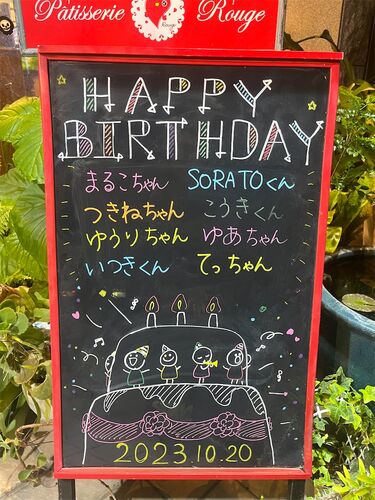 Pâtisserie Rouge
Rouge
HAPPY
BIRTHDAY
まるこちゃん SORATOくん
つきねちゃん こうきくん
ゆうりちゃん ゆあちゃん
いつきくん てっちゃん
2023.10.20